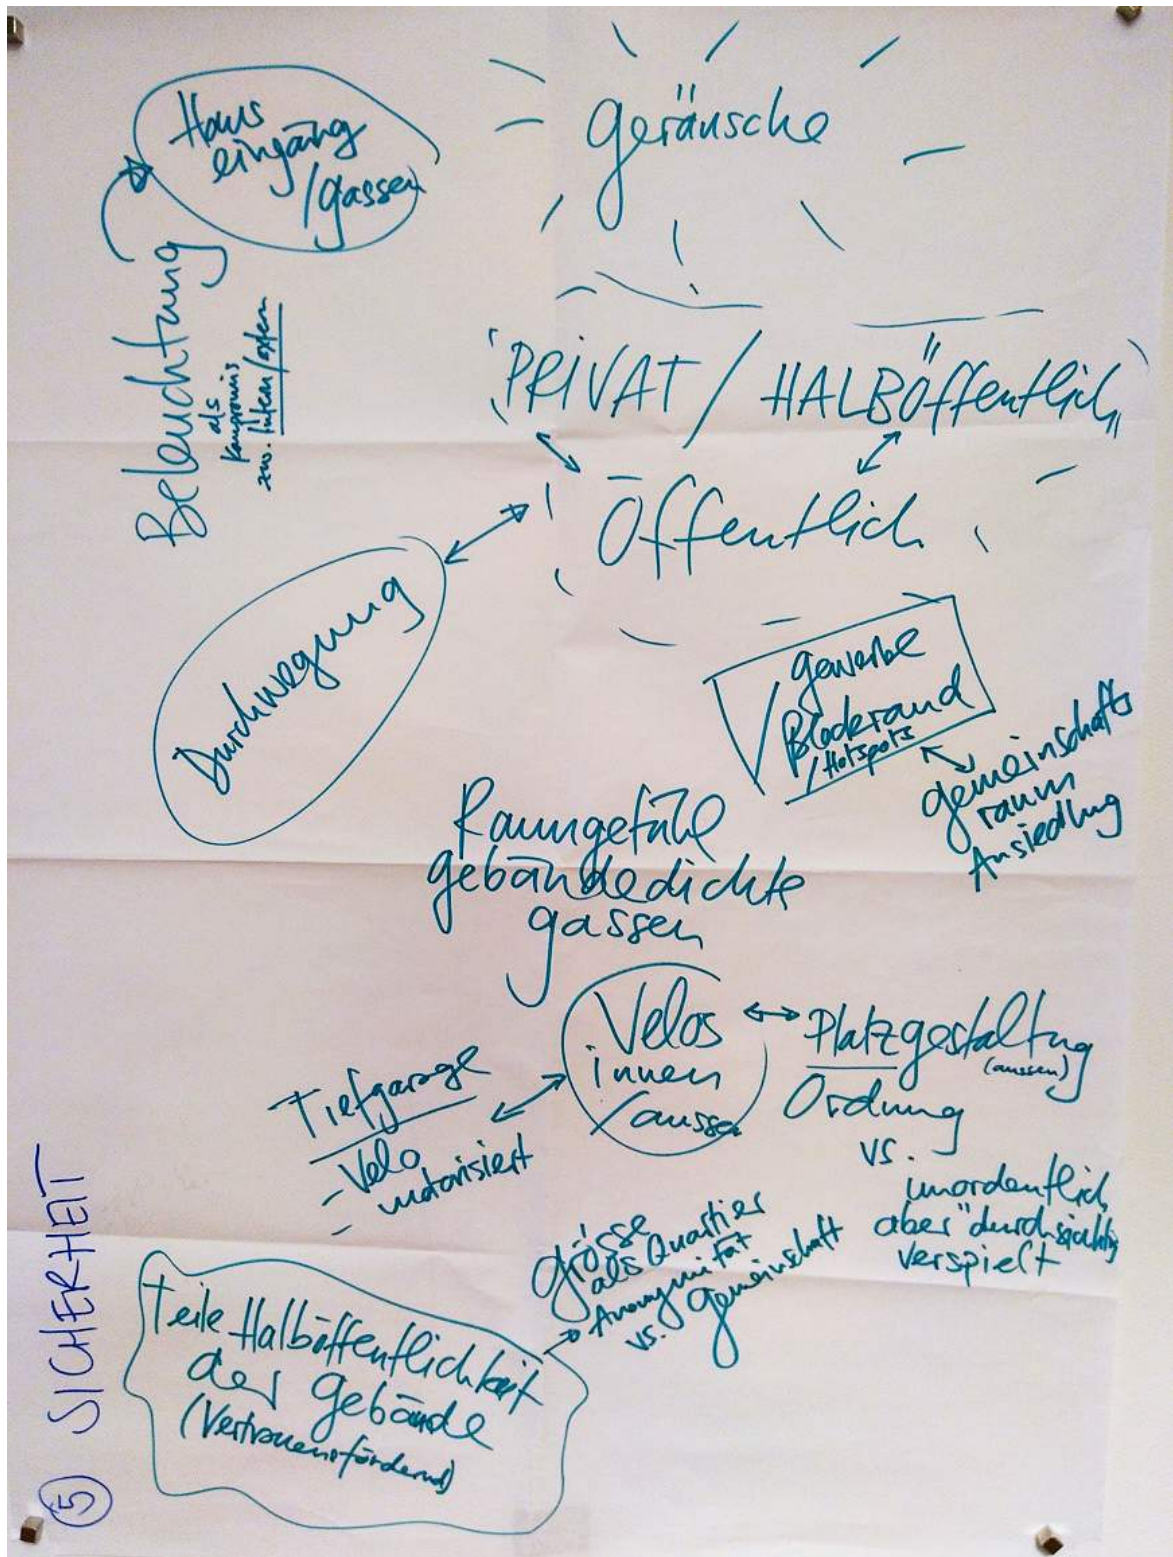 Geräusche
Haus
eingäng
/gassen
Beleuchtung
als
Kompromis
zw. intern/extern
PRIVAT / HALBÖffentlich
Öffentlich
Durchwegung
Gewerbe
Blockrand
/Hotspots
Gemeinschafts
raum
Ansiedlung
Raumgefühl
Gebäudedichte
Gassen
Velos
innen
/aussen
Platzgestaltung
(aussen)
Ordnung
vs.
unordentlich
aber "durchsichtig
verspielt
Tiefgarage
- Velo
- motorisiert
-
Grösse
als Quartier
Anonymität
vs. Gemeinschaft
Teile Halböffentlichkeit
der Gebäude
(Vertrauensfördernd)
5 SICHERHEIT